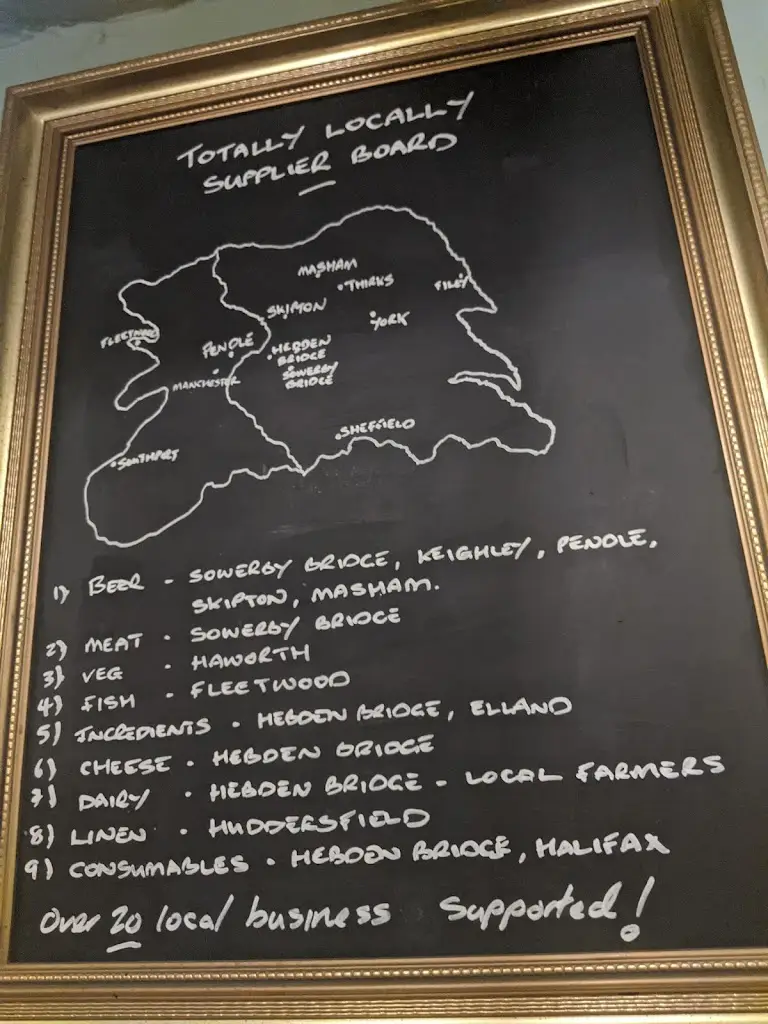 TOTALLY LOCALLY
SUPPLIER BOARD
MASHAM
THIRKS
FILEY
SKIPTON
YORK
FLEETWOOD
PENDLE
HEBDEN
BRIDGE
MANCHESTER
SOWERBY
BRIDGE
SHEFFIELD
SOUTHPORT
1) BEER - SOWERBY BRIDGE, KEIGHLEY, PENDLE,
SKIPTON, MASHAM.
2) MEAT - SOWERBY BRIDGE
3) VEG - HAWORTH
4) FISH - FLEETWOOD
5) INGREDIENTS - HEBDEN BRIDGE, ELLAND
6) CHEESE - HEBDEN BRIDGE
7) DAIRY - HEBDEN BRIDGE - LOCAL FARMERS
8) LINEN - HUDDERSFIELD
9) CONSUMABLES - HEBDEN BRIDGE, HALIFAX
Over 20 local business Supported!